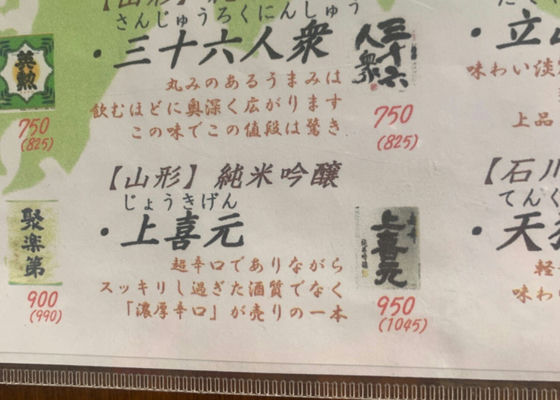 【山形】
さんじゅうろくにんしゅう
・三十六人衆
丸みのあるうまみは
飲むほどに奥深く広がります
この味でこの値段は驚き
三十六
人衆
750
(825)
英勲
750
(825)
【山形】純米吟醸
じょうきげん
・上喜元
超辛口でありながら
スッキリし過ぎた酒質でなく
「濃厚辛口」が売りの一本
上喜元
950
(1045)
聚楽第
900
(990)
・立山
味わい淡
上品
【石川
てんく
・天
軽
味わ